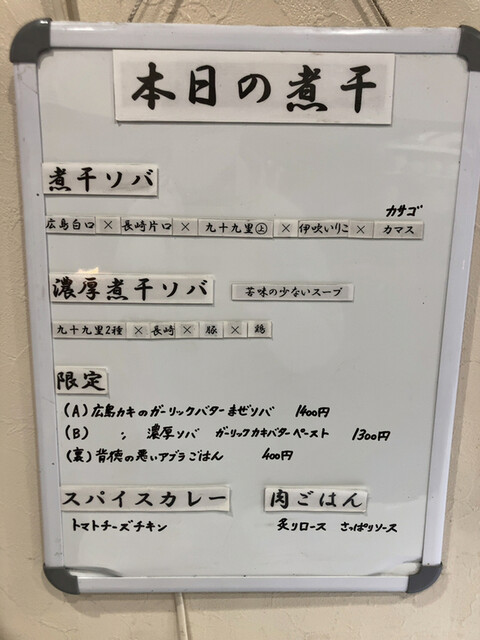 本日の煮干
煮干ソバ
カサゴ
広島白口 × 長崎片口 × 九十九里㊤ × 伊吹いりこ × カマス
濃厚煮干ソバ 苦味の少ないスープ
九十九里2種 × 長崎 × 豚 × 鶏
限定
(A) 広島カキのガーリックバターまぜソバ 1400円
(B) : 濃厚ソバ ガーリックカキバターペースト 1300円
(裏) 背徳の悪いアブラごはん 400円
スパイスカレー 肉ごはん
トマトチーズチキン 炙りロース さっぱりソース